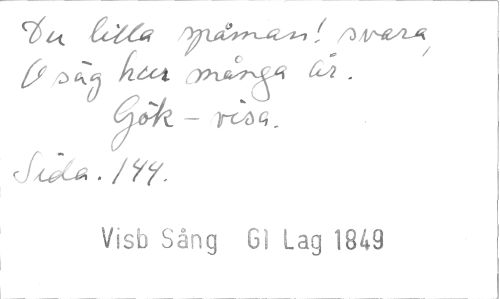 Du lilla spåman! svara,
O säg hur många år.
Gök - visa.
Sida. 144.
Visb Sång Gl Lag 1849